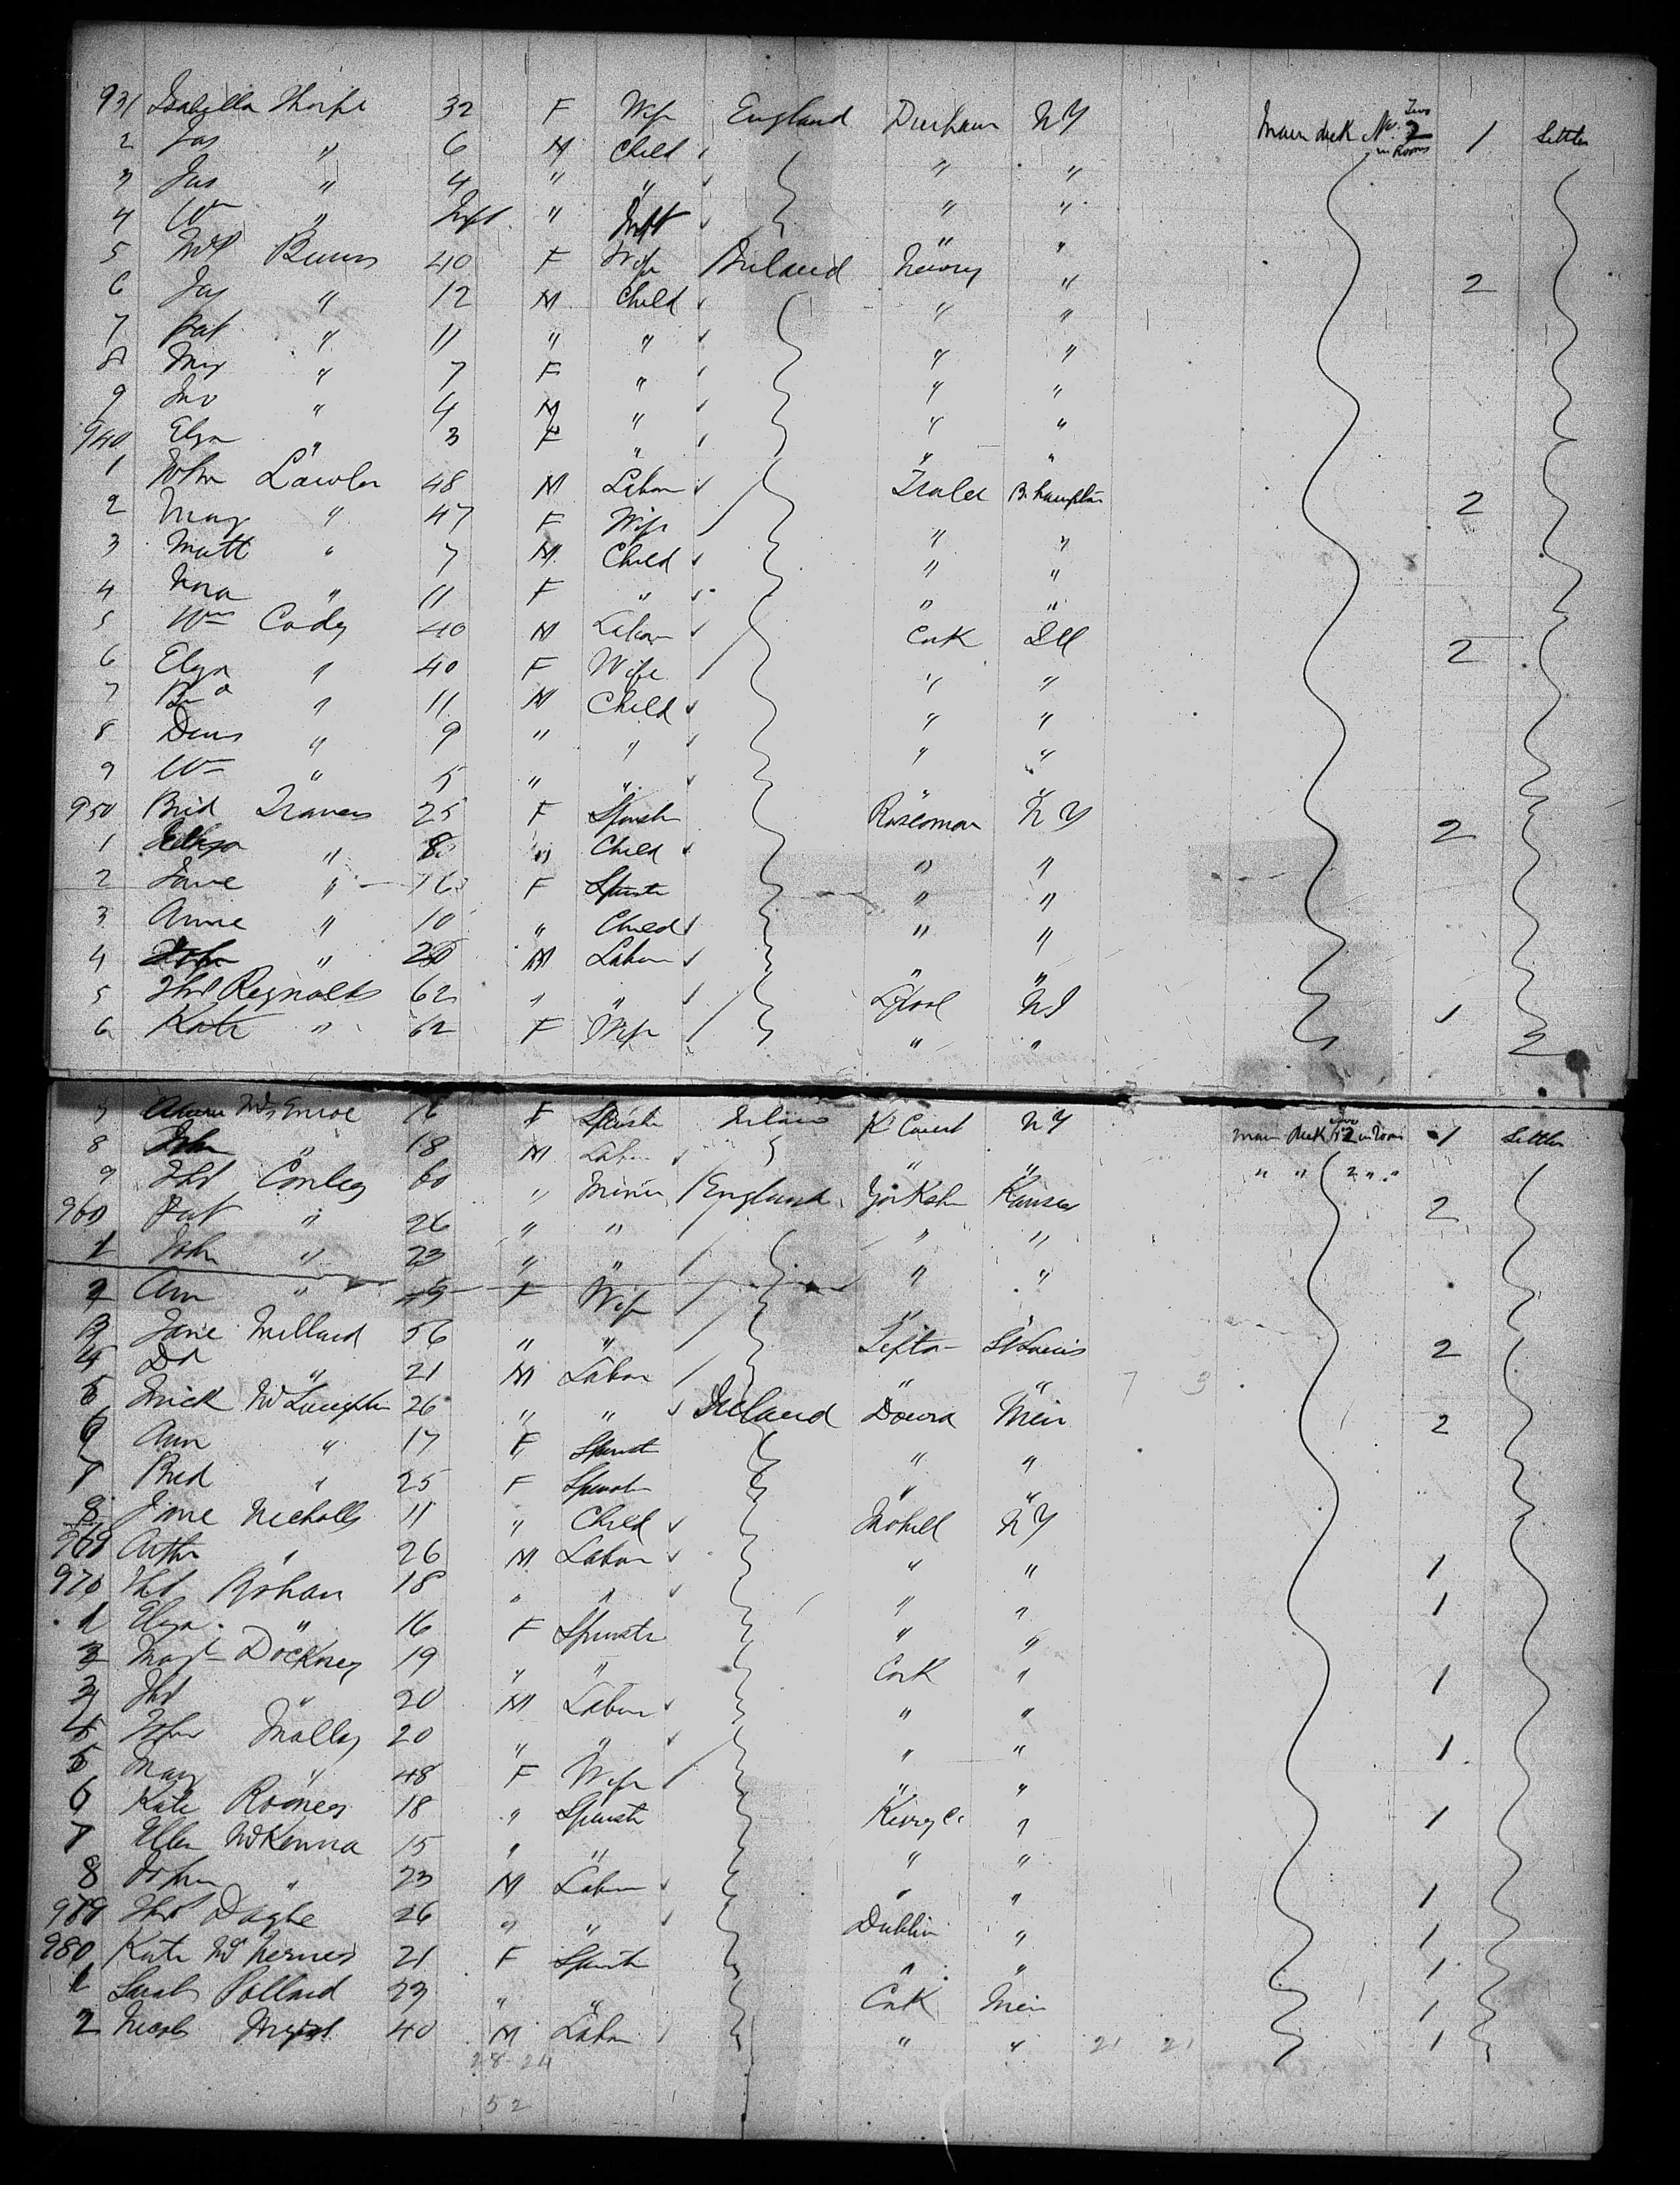 931 Isabella Thorpe 32 F Wife England Durham NY Main deck No. 2 Two in Rooms 1 Settler
2 Jas " 6 M Child " "
3 Jas " 4 " " " "
4 Wm " Inft " Inft " "
5 Burns 40 F Wife Ireland Newry " 2
6 Jas " 12 M Child " "
7 Pat " 11 " " " "
8 " 7 F " " "
9 Jno " 4 M " " "
940 Elza " 3 F " " "
1 John Lawler 48 M Labor Tralee 2
2 Mary " 47 F Wife " "
3 Matt " 7 M Child " "
4 Nora " 11 F " " "
5 Wm Cody 40 M Labor Cork Ill 2
6 Elza " 40 F Wife " "
7 " 11 M Child " "
8 Denis " 9 " " " "
9 Wm " 5 " " " "
950 Brid Travers 25 F Spinster Roscomon NY 2
1 " 8 " Child " "
2 Jane " 16 F Spinster " "
3 Annie " 10 " Child " "
4 John " 20 M Labor " "
5 Thos Reynolds 62 " " L'pool NJ 1
6 Kate " 62 F Wife " " 2
7 16 F Spinster Ireland NY Main deck 2 in Room 1 Settler
8 John " 18 M Labor " " " " 2 " "
9 Thos Conley 60 " Miner England Yorksh Kansas 2
960 Pat " 26 " " " "
1 John " 23 " " " "
2 Ann " F Wife " "
3 Jane Millard 56 " " St Louis 2
4 " 21 M Labor " "
5 Mick McLaughlin 26 " " Ireland 2
6 Ann " 17 F Spinst " "
7 Brid " 25 F Spinst " "
8 Jane Nicholls 11 " Child Mohill NY
969 Arthr " 26 M Labor " " 1
970 Thos Rohan 18 " " " " 1
1 Elza " 16 F Spinster " "
2 Magt Dockney 19 " " Cork " 1
3 Thos " 20 M Labor " "
4 John Mallay 20 " " " " 1
5 Mary " 48 F Wife " "
6 Kate Rooney 18 " Spinster Kerry Co " 1
7 Ellen McKenna 15 " " " "
8 John " 23 M Labor " " 1
979 Thos 26 " " Dublin " 1
980 Kate 21 F Spinster " " 1
1 Sarah Pollard 23 " " Cork 1
2 40 M Labor " " 2 2 1
28-24
52